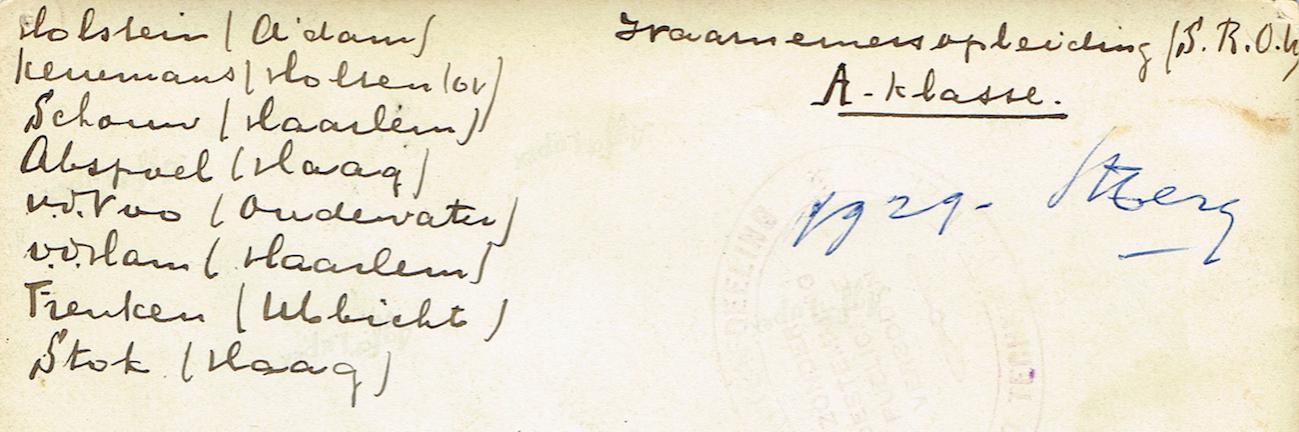 Holstein (A'dam)
Kerremans (Holsen (ov)
Schouw (Haarlem)
Abspoel (Haag)
v.d. Voo (Oudewater)
v.d. Ham (Haarlem)
Frenken (Obbicht)
Stok (Haag)
Waarnemersopleiding (S.R.O.
A-klasse.
1929-
DEELING
TECHN
ZONDER